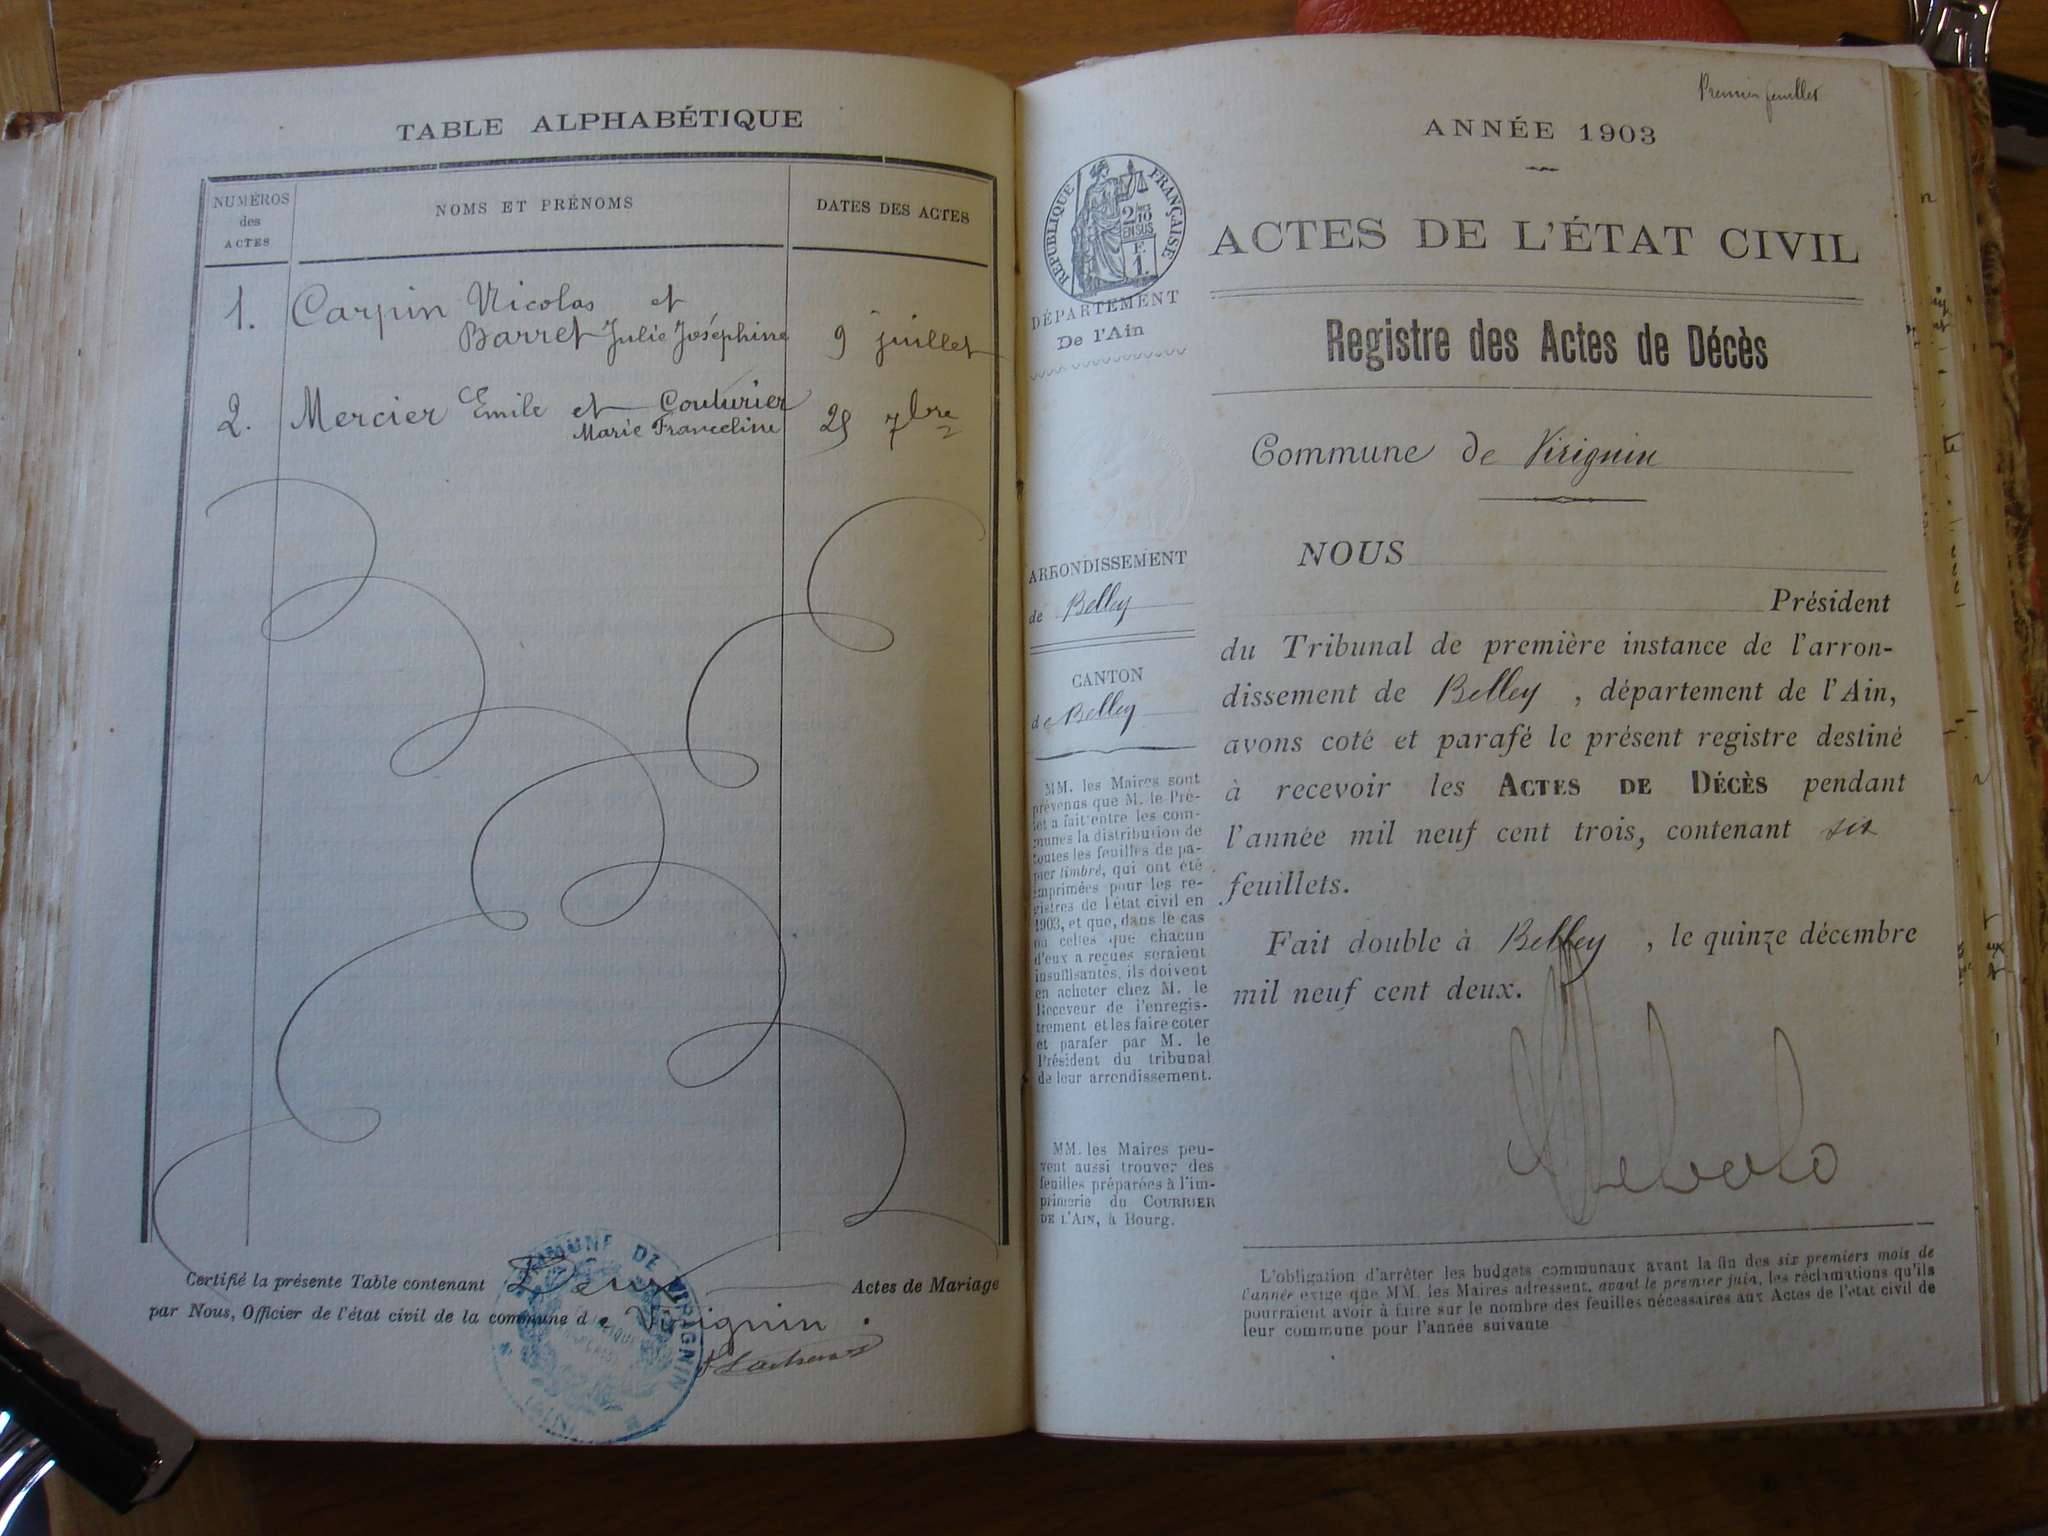 TABLE ALPHABÉTIQUE
NUMÉROS
des
ACTES
NOMS ET PRÉNOMS
DATES DES ACTES
1. Carpin Nicolas et
Barret Julie Joséphine 9 juillet
2. Mercier Emile et Couturier
Marie Franceline 25 7bre
Certifié la présente Table contenant Deux Actes de Mariage
par Nous, Officier de l'état civil de la commune de Virignin.
COMMUNE DE VIRIGNIN
Premier feuillet
ANNÉE 1903
RÉPUBLIQUE FRANÇAISE
2/10
EN SUS
F.
1.
ACTES DE L'ÉTAT CIVIL
DÉPARTEMENT
De l'Ain
Registre des Actes de Décès
Commune de Virignin
ARRONDISSEMENT
de Belley
CANTON
de Belley
MM. les Maires sont
prévenus que M. le Pré-
fet a fait entre les com-
munes la distribution de
toutes les feuilles de pa-
pier timbré, qui ont été
imprimées pour les re-
gistres de l'état civil en
1903, et que, dans le cas
où celles que chacun
d'eux a reçues seraient
insuffisantes, ils doivent
en acheter chez M. le
Receveur de l'enregis-
trement et les faire coter
et parafer par M. le
Président du tribunal
de leur arrondissement.
MM. les Maires peu-
vent aussi trouver des
feuilles préparées à l'im-
primerie du COURRIER
DE L'AIN, à Bourg.
NOUS
Président
du Tribunal de première instance de l'arron-
dissement de Belley, département de l'Ain,
avons coté et parafé le présent registre destiné
à recevoir les ACTES DE DÉCÈS pendant
l'année mil neuf cent trois, contenant six
feuillets.
Fait double à Belley, le quinze décembre
mil neuf cent deux.
L'obligation d'arrêter les budgets communaux avant la fin des six premiers mois de
l'année exige que MM. les Maires adressent, avant le premier juin, les réclamations qu'ils
pourraient avoir à faire sur le nombre des feuilles nécessaires aux Actes de l'état civil de
leur commune pour l'année suivante